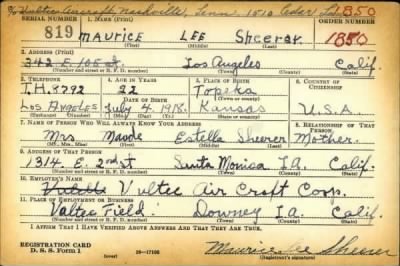 % Vultee Aircraft, Nashville, Tenn. 1510 Cedar
SERIAL NUMBER 1. NAME (Print) ORDER NUMBER
819 MAURICE LEE Sheerer 1850
(First) (Middle) (Last)
2. ADDRESS (Print)
342 E. 105 St. Los Angeles Calif.
(Number and street or R. F. D. number) (Town) (County) (State)
3. TELEPHONE 4. AGE IN YEARS 5. PLACE OF BIRTH 6. COUNTRY OF CITIZENSHIP
T.H. 8792 22 Topeka
DATE OF BIRTH
Los Angeles July 4 1918. Kansas U.S.A.
(Exchange) (Number) (Mo.) (Day) (Yr.) (State or country)
7. NAME OF PERSON WHO WILL ALWAYS KNOW YOUR ADDRESS 8. RELATIONSHIP OF THAT PERSON
Mrs Maude Estella Sheerer Mother.
(Mr., Mrs., Miss) (First) (Middle) (Last)
9. ADDRESS OF THAT PERSON
1314. E. 2nd St Santa Monica LA. Calif.
(Number and street or R. F. D. number) (Town) (County) (State)
10. EMPLOYER'S NAME
Vultee Air Craft Corp.
11. PLACE OF EMPLOYMENT OR BUSINESS
Vultee Field. Downey La. Calif.
(Number and street or R. F. D. number) (Town) (County) (State)
I AFFIRM THAT I HAVE VERIFIED ABOVE ANSWERS AND THAT THEY ARE TRUE.
REGISTRATION CARD
D. S. S. Form 1 (over) 16—17105 Maurice Lee Sheerer
(Registrant's signature)